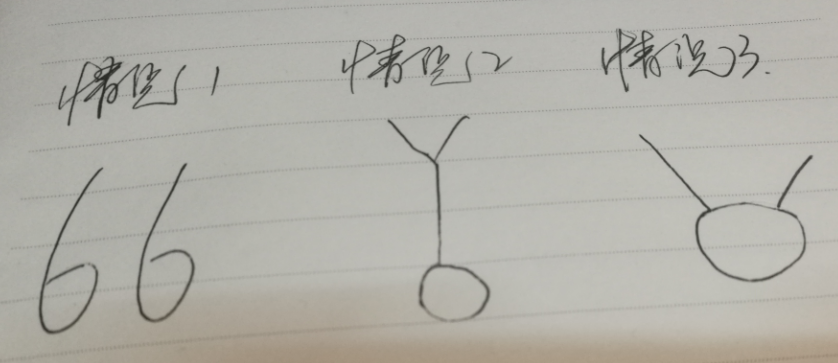 情况1 情况2 情况3.
66